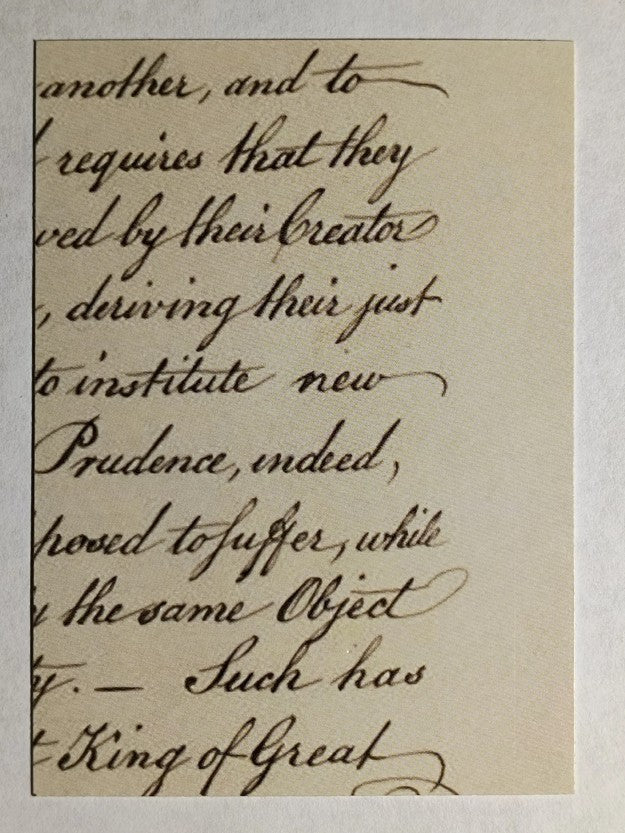 another, and to
requires that they
ved by their Creator
, deriving their just
to institute new
Prudence, indeed,
posed to suffer, while
the same Object
ty. — Such has
t King of Great